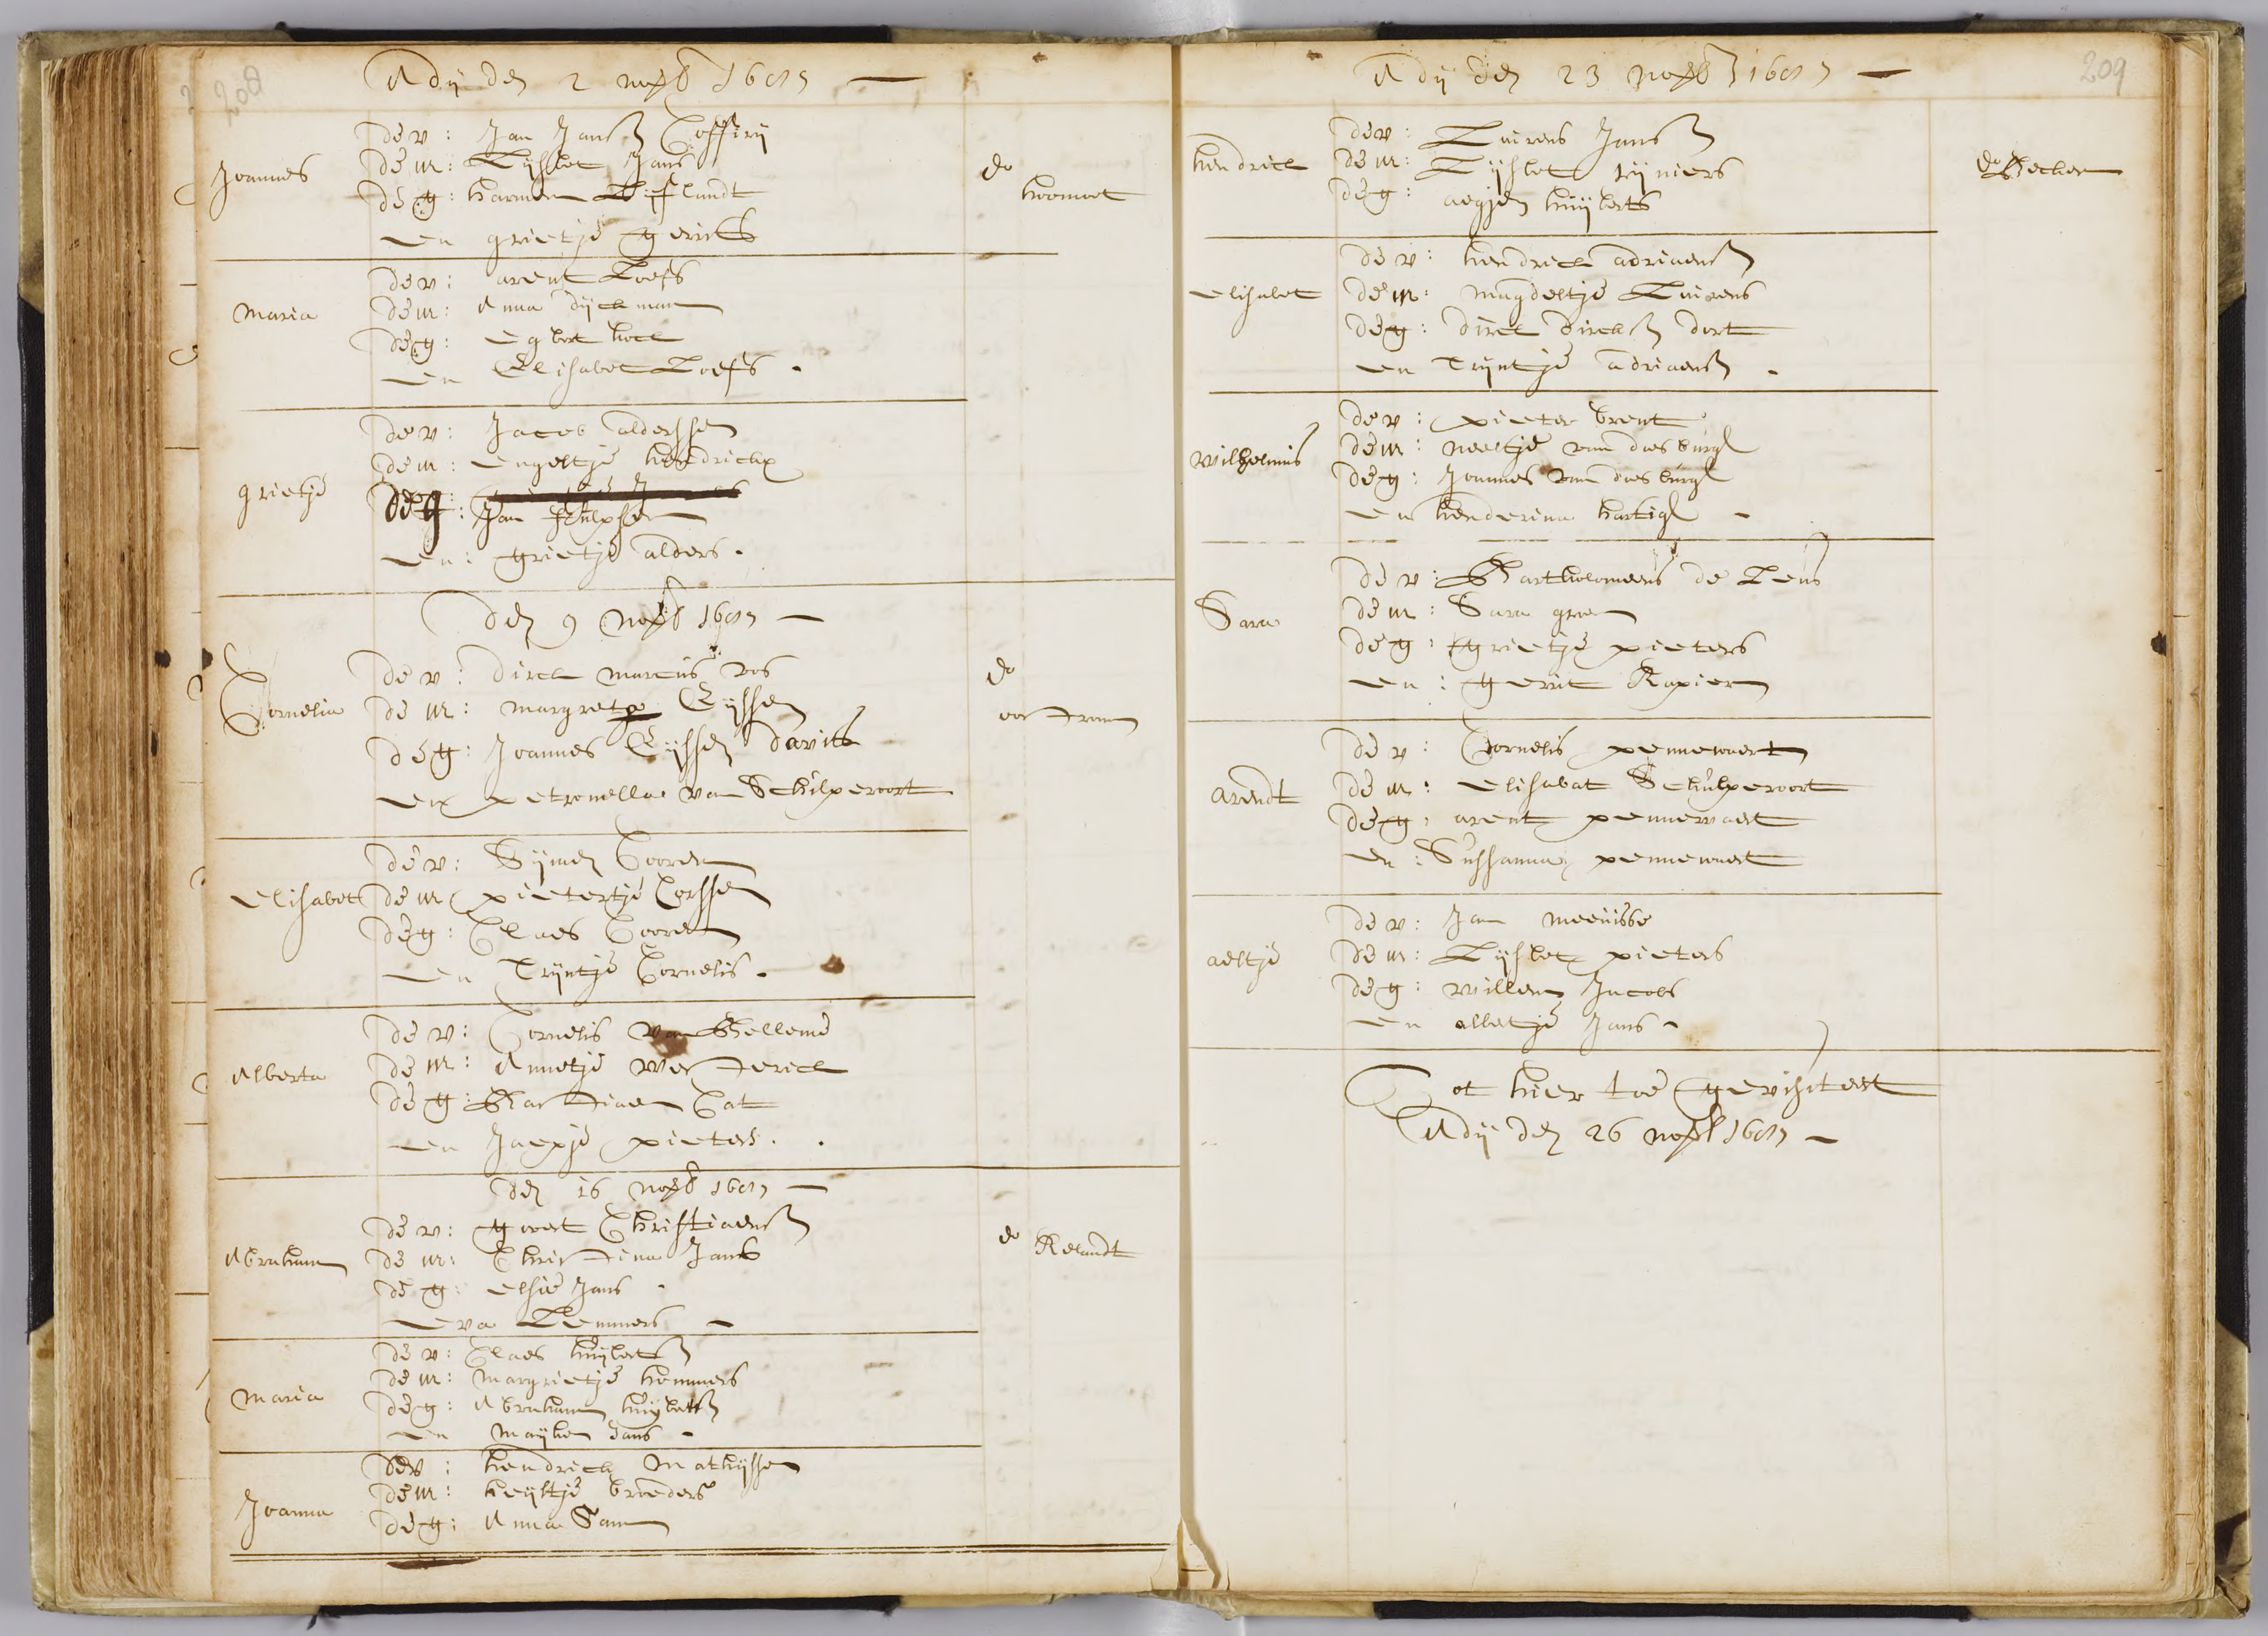 208
Adij den 2 novb 1687
Joannes
de v: Jan Jansz Coffrij
de m: Lijsbet Jans
de g: harmen Lijflandt
en grietje gerrits
do hoornoot
Maria
de v: arent Loefs
de m: Anna dijckman
de g: egbert hoeck
en Elisabet Loefs.
grietje
de v: Jacob alderssen
de m: engeltje hendrickx
de g: Jan
en: grietje alders.
den 9 novb 1687
Cornelia
de v: dirck marcus vos
de m: margreta Eijssen
de g: Joannes Eijssen davits
en petronella van Schilperoort
do oostrom
elisabet
de v: Sijmen Cooren
de m: pietertje Corssen
de g: Claes Cooren
en Trijntje Cornelis.
Alberta
de v: Cornelis van Bellem
de m: Annetje westerick
de g: Bastiaen Cat
en Jaepje pieters.
den 16 novb 1687
Abraham
de v: gerret Christiaensz
de m: Christina Jans
de g: elsie Jans
eva Lemmers
do Relandt
Maria
de v: Claes huijbertsz
de m: margrietje hemmers
de g: Abraham huijbertsz
en maijken Jans
Joanna
de v: hendrick Mathijssen
de m: heijltje broeders
de g: Anna Sam
209
Adij den 23 novb 1687
hendrick
de v: Luirens Jansz
de m: Lijsbet rijniers
de g: aegjen huijberts
do Becker
elisabet
de v: hendrick adriaensz
de m: magdeltje Luirens
de g: dirck dircksz dort
en Trijntje adriaensz.
Wilhelmus
de v: pieter brent
de m: neeltje van doesburgh
de g: Joannes van doesburgh
en henderina hartigh
Sara
de v: Bartholomeus de Leus
de m: Sara groen
de g: grietje pieters
en: gerrit Rapier
arendt
de v: Cornelis pennewaert
de m: elisabat Schulperoort
de g: arent pennewaert
en: Sussanna pennewaert
aeltje
de v: Jan meeuisse
de m: Lijsbet pieters
de g: willem Jacobs
en alletje Jans.
Tot hier toe gevisiteert
Adij den 26 novb 1687